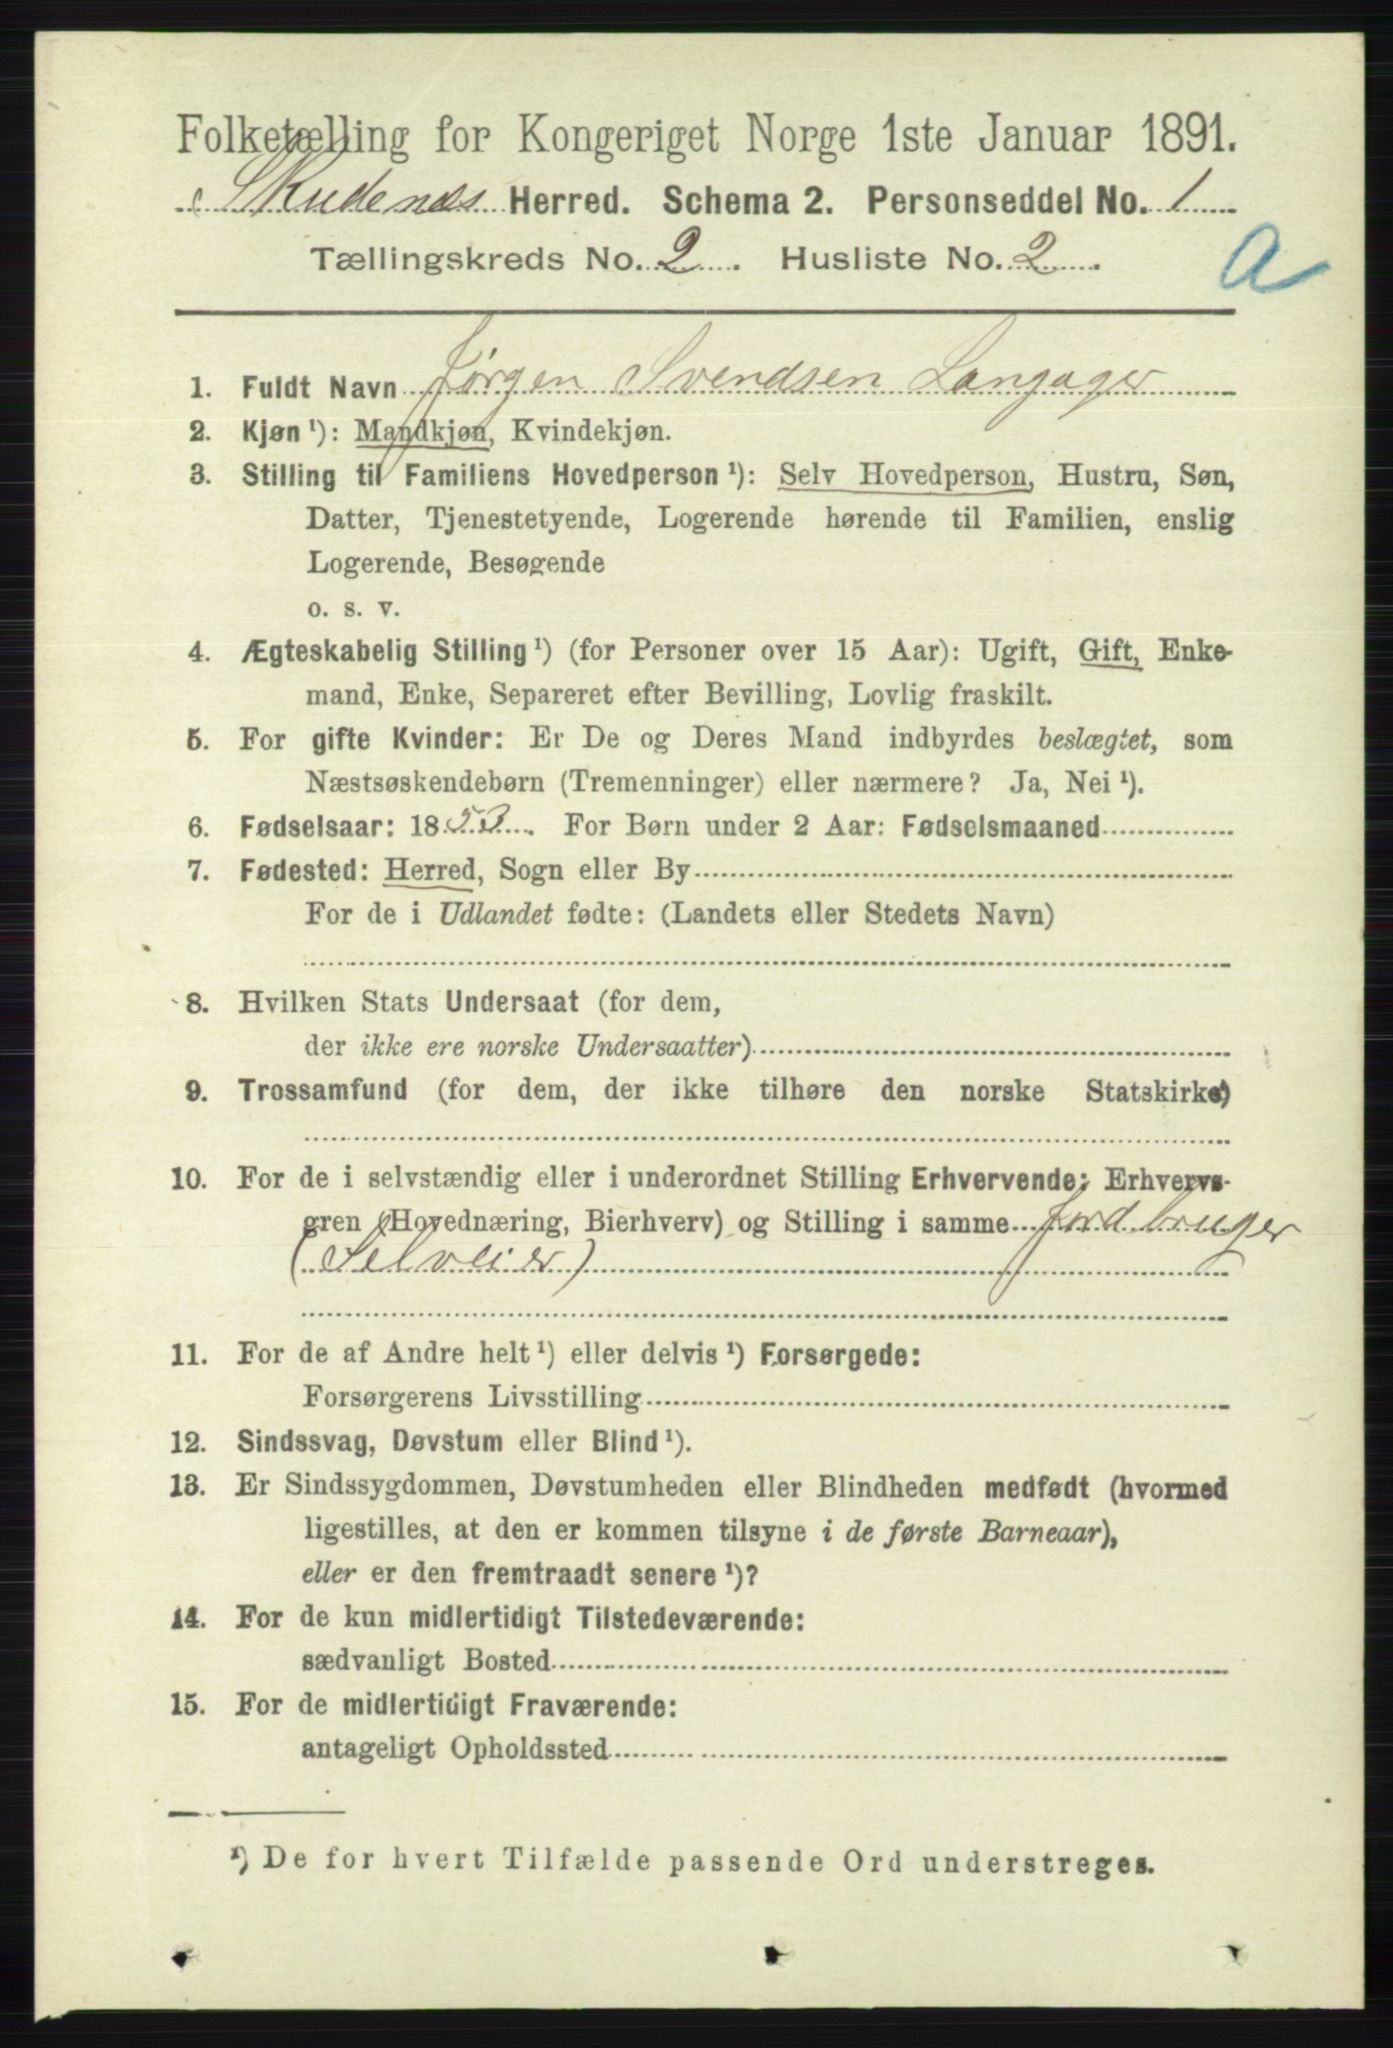 Folketælling for Kongeriget Norge 1ste Januar 1891.
Skudenes Herred. Schema 2. Personseddel No. 1
Tællingskreds No. 2. Husliste No. 2.
a
1. Fuldt Navn Jörgen Svendsen Langager
2. Kjøn ¹): Mandkjøn, Kvindekjøn.
3. Stilling til Familiens Hovedperson ¹): Selv Hovedperson, Hustru, Søn,
Datter, Tjenestetyende, Logerende hørende til Familien, enslig
Logerende, Besøgende
o. s. v.
4. Ægteskabelig Stilling ¹) (for Personer over 15 Aar): Ugift, Gift, Enke-
mand, Enke, Separeret efter Bevilling, Lovlig fraskilt.
5. For gifte Kvinder: Er De og Deres Mand indbyrdes beslægtet, som
Næstsøskendebørn (Tremenninger) eller nærmere? Ja, Nei ¹).
6. Fødselsaar: 1853. For Børn under 2 Aar: Fødselsmaaned
7. Fødested: Herred, Sogn eller By
For de i Udlandet fødte: (Landets eller Stedets Navn)
8. Hvilken Stats Undersaat (for dem,
der ikke ere norske Undersaatter)
9. Trossamfund (for dem, der ikke tilhøre den norske Statskirke)
10. For de i selvstændig eller i underordnet Stilling Erhvervende: Erhvervs-
gren (Hovednæring, Bierhverv) og Stilling i samme Jordbruger
(Selveier)
11. For de af Andre helt ¹) eller delvis ¹) Forsørgede:
Forsørgerens Livsstilling
12. Sindssvag, Døvstum eller Blind ¹).
13. Er Sindssygdommen, Døvstumheden eller Blindheden medfødt (hvormed
ligestilles, at den er kommen tilsyne i de første Barneaar),
eller er den fremtraadt senere ¹)?
14. For de kun midlertidigt Tilstedeværende:
sædvanligt Bosted
15. For de midlertidigt Fraværende:
antageligt Opholdssted
¹) De for hvert Tilfælde passende Ord understreges.